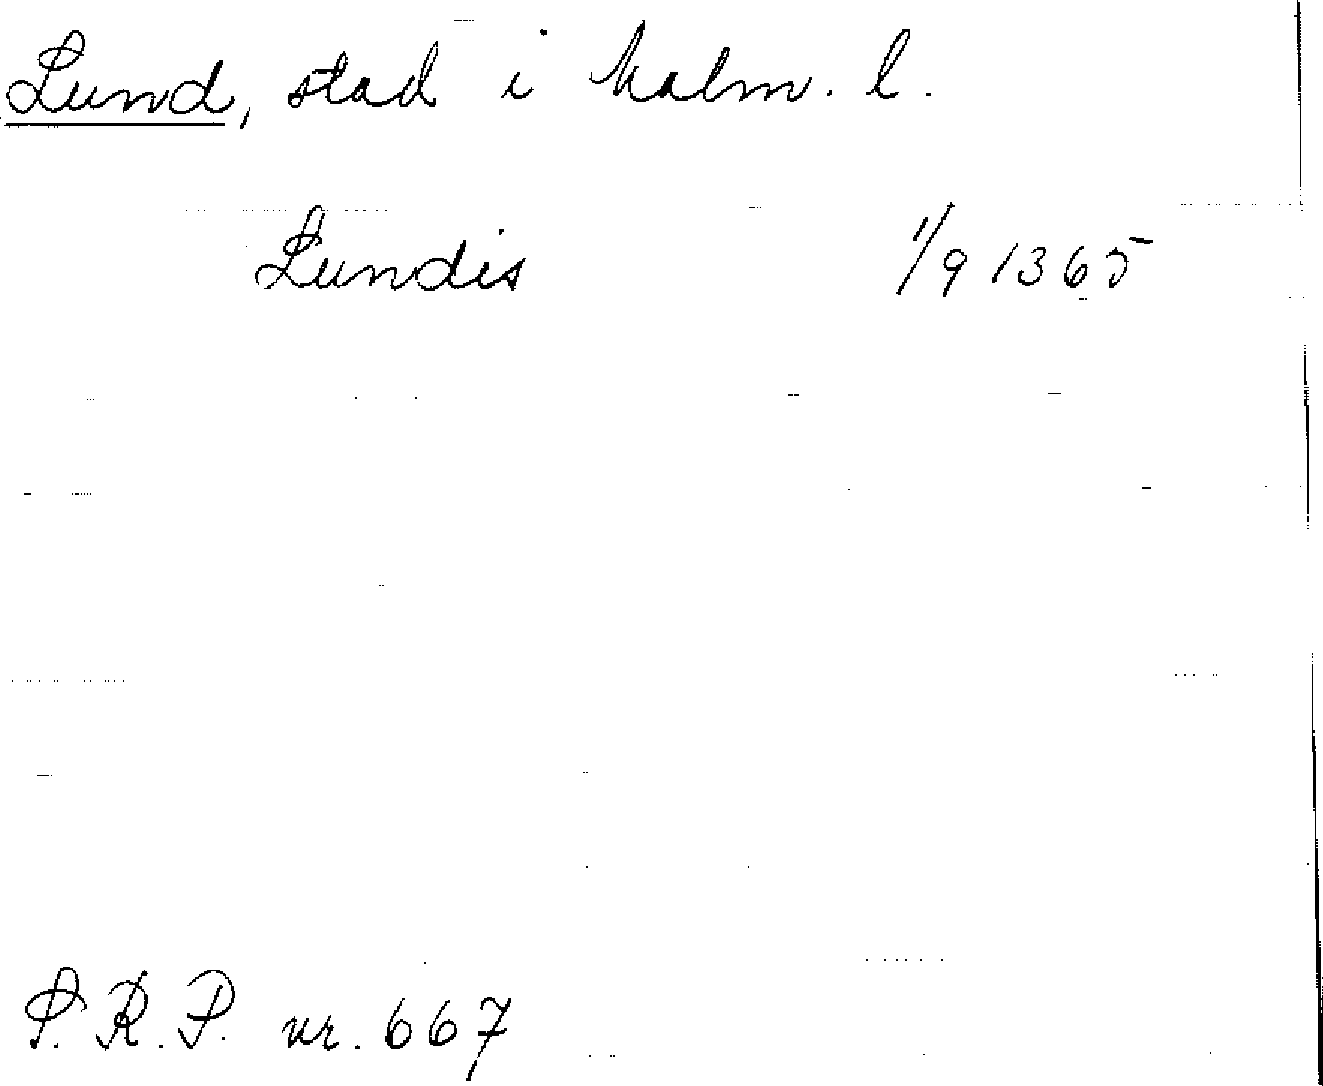 Lund, stad i Malm. l.
Lundis 1/9 1365
S.R.P. nr. 667